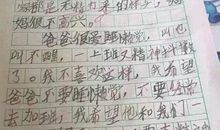 都是无精打采的样子，
妈很不高兴。
爸爸很爱睡懒觉，叫也
叫不醒，一上班又精神抖擞
了。我不喜欢这样，我希望
爸爸不要睡懒觉，不要经常
去加班，我希望他和我们一